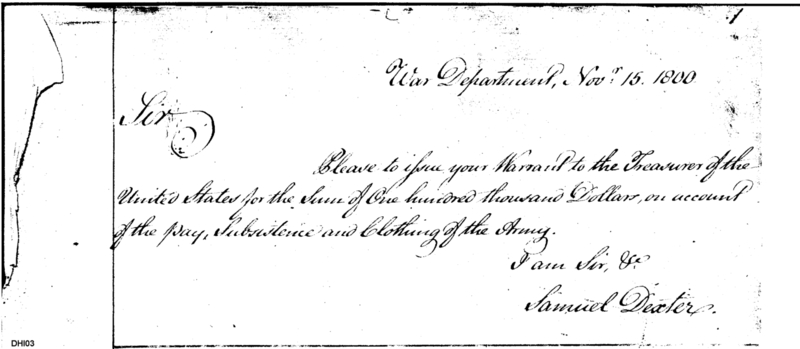 War Department, Novr. 15. 1800
Sir
Please to issue your Warrant to the Treasurer of the
United States for the Sum of One hundred thousand Dollars, on account
of the pay, Subsistence and Clothing of the Army.
I am Sir, &c.
Samuel Dexter.
DHI03